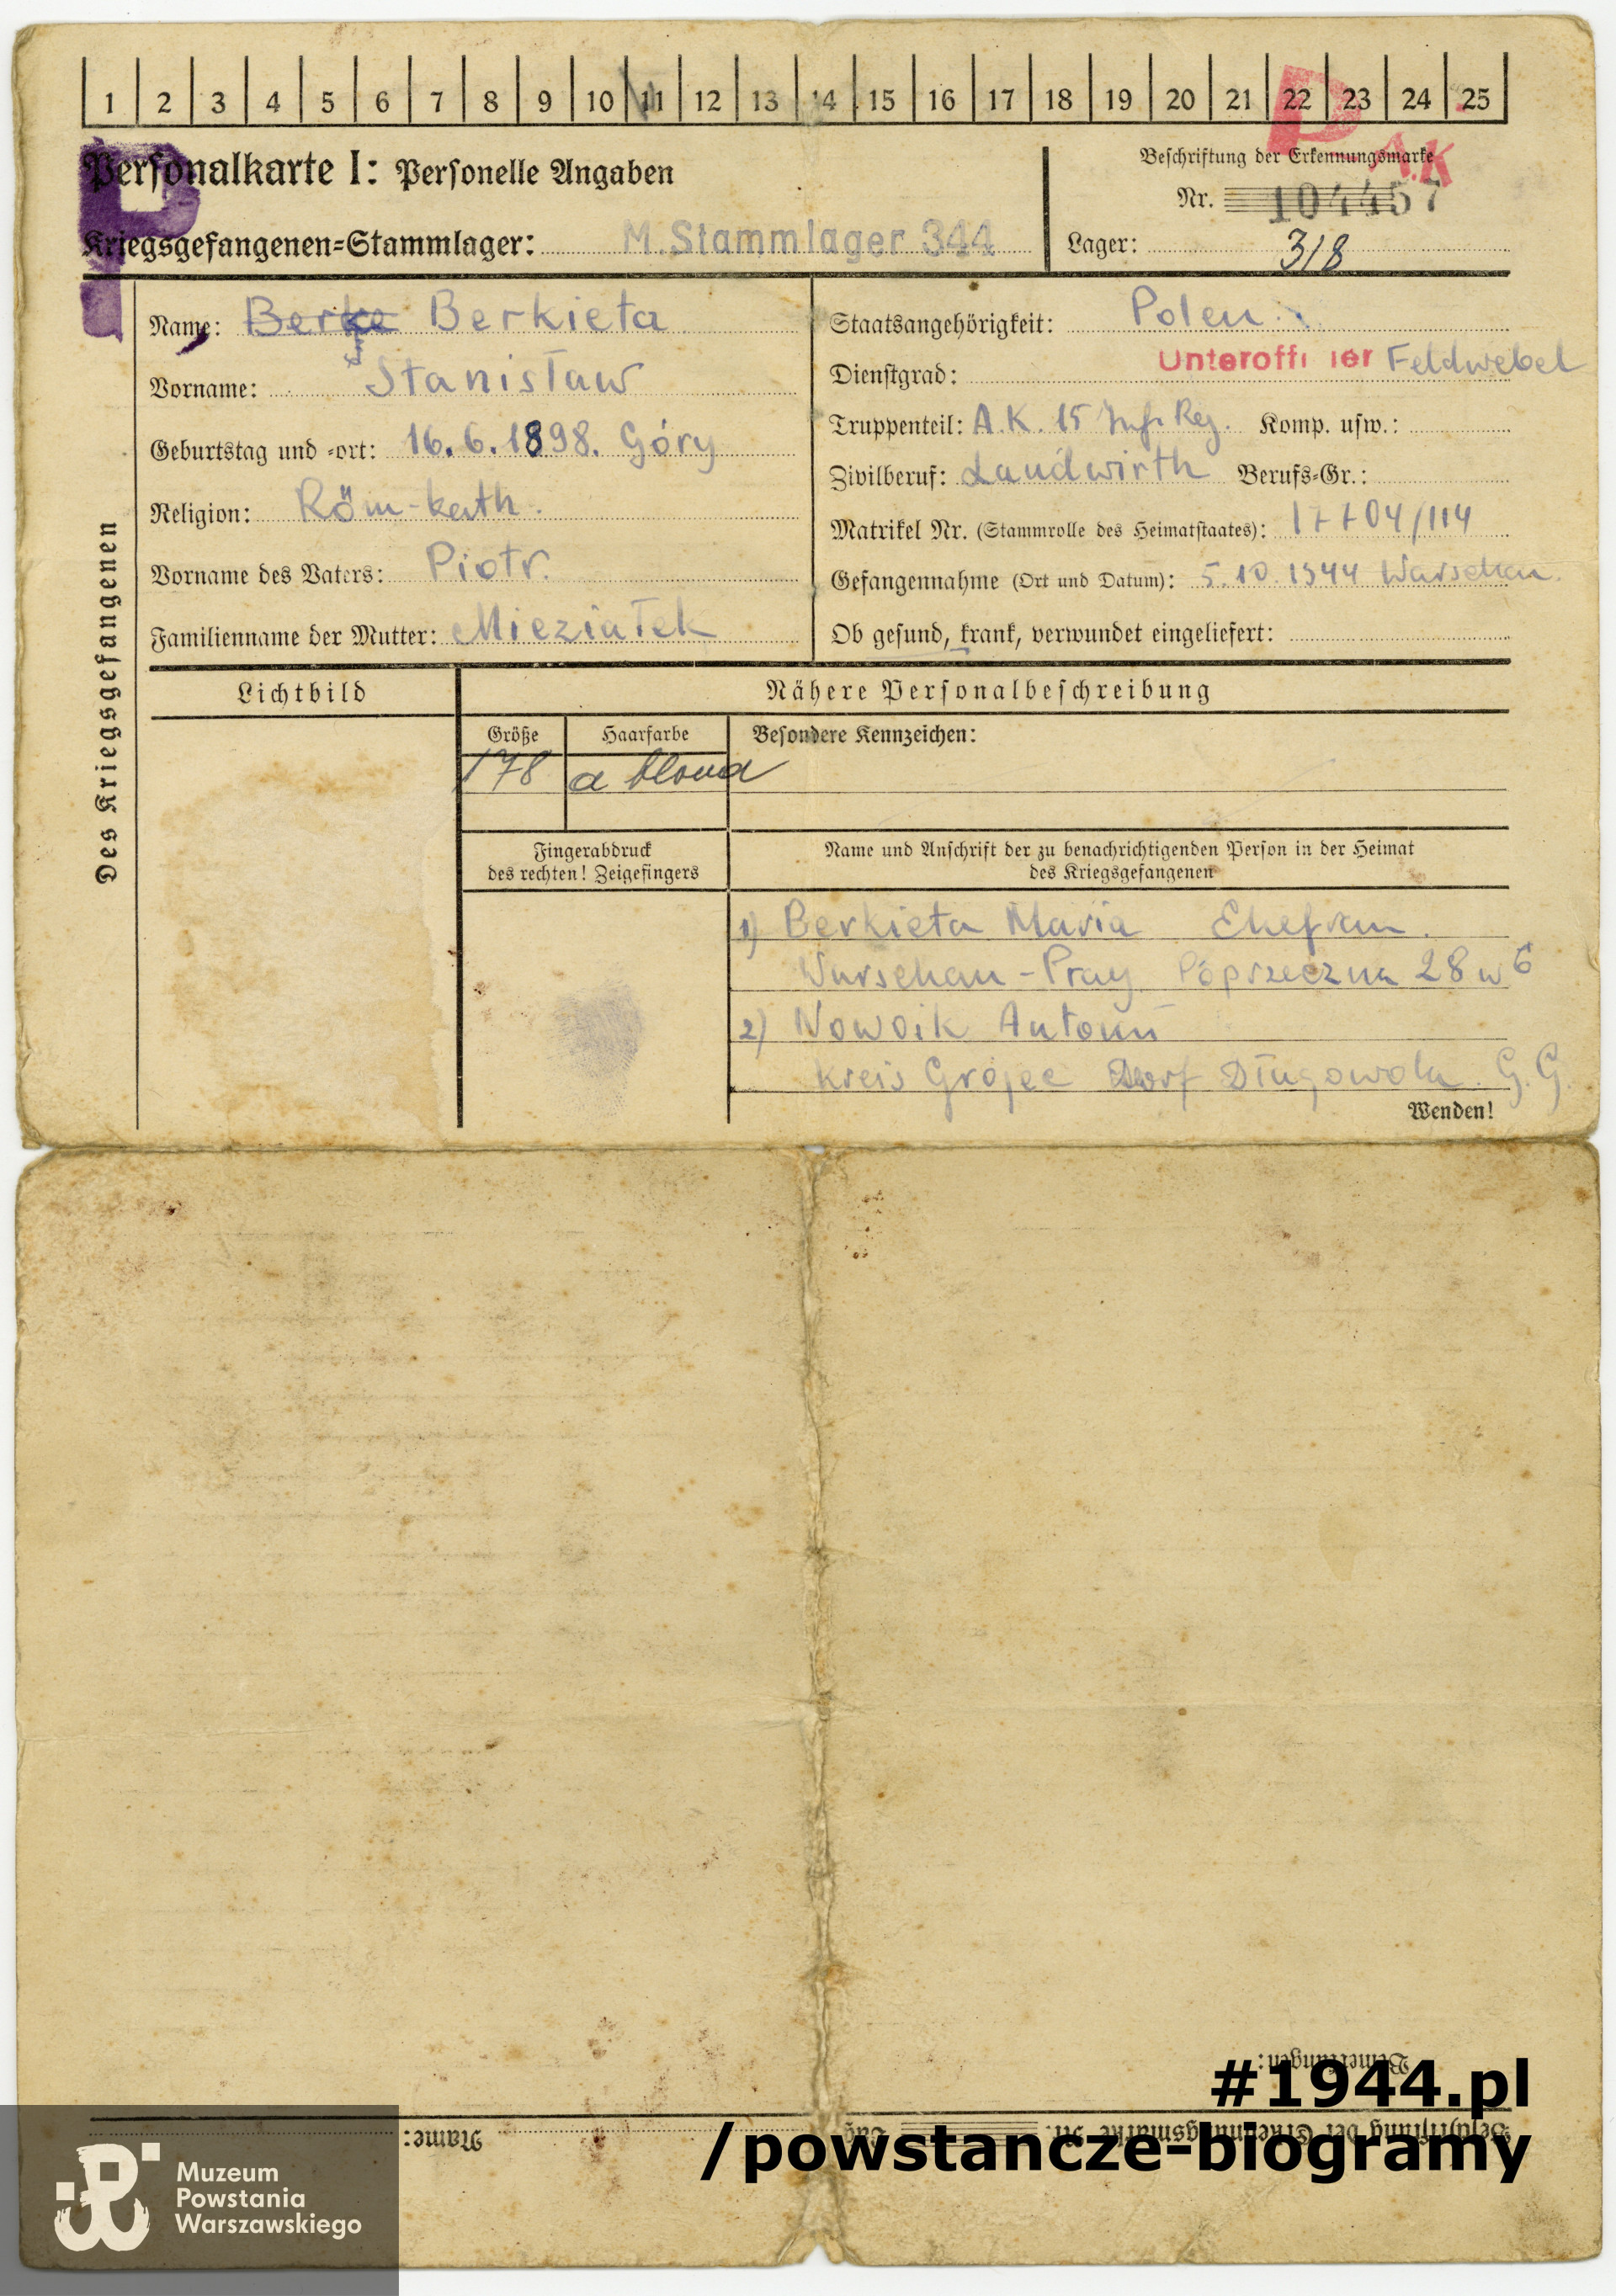 1 2 3 4 5 6 7 8 9 10 11 12 13 14 15 16 17 18 19 20 21 22 23 24 25
P A.K
Personalkarte I: Personelle Angaben
Beschriftung der Erkennungsmarke
Nr. 104457
P
Kriegsgefangenen=Stammlager: M.Stammlager 344
Lager: 318
Des Kriegsgefangenen
Name: Berke Berkieta
Vorname: Stanisław
Geburtstag und =ort: 16.6.1898. Góry
Religion: Röm-kath.
Vorname des Vaters: Piotr.
Familienname der Mutter: Mieziałek
Staatsangehörigkeit: Polen
Dienstgrad: Unteroffi ier Feldwebel
Truppenteil: A.K. 15 Inf. Reg. Komp. usw.:
Zivilberuf: Landwirth Berufs=Gr.:
Matrikel Nr. (Stammrolle des Heimatstaates): 17704/114
Gefangennahme (Ort und Datum): 5.10.1944 Warschau.
Ob gesund, krank, verwundet eingeliefert:
Lichtbild
Nähere Personalbeschreibung
Größe Haarfarbe Besondere Kennzeichen:
178 d blond
Fingerabdruck
des rechten! Zeigefingers
Name und Anschrift der zu benachrichtigenden Person in der Heimat
des Kriegsgefangenen
1) Berkieta Maria Ehefrau.
Warschau-Prag Poprzeczna 28 w 6
2) Nowoik Antoni
Kreis Grojec Dorf Długowola. G.G.
Wenden!
Bemerkungen:
Beschriftung der Erkennungsmarke Nr.
Name:
#1944.pl
/powstancze-biogramy
Muzeum
Powstania
Warszawskiego